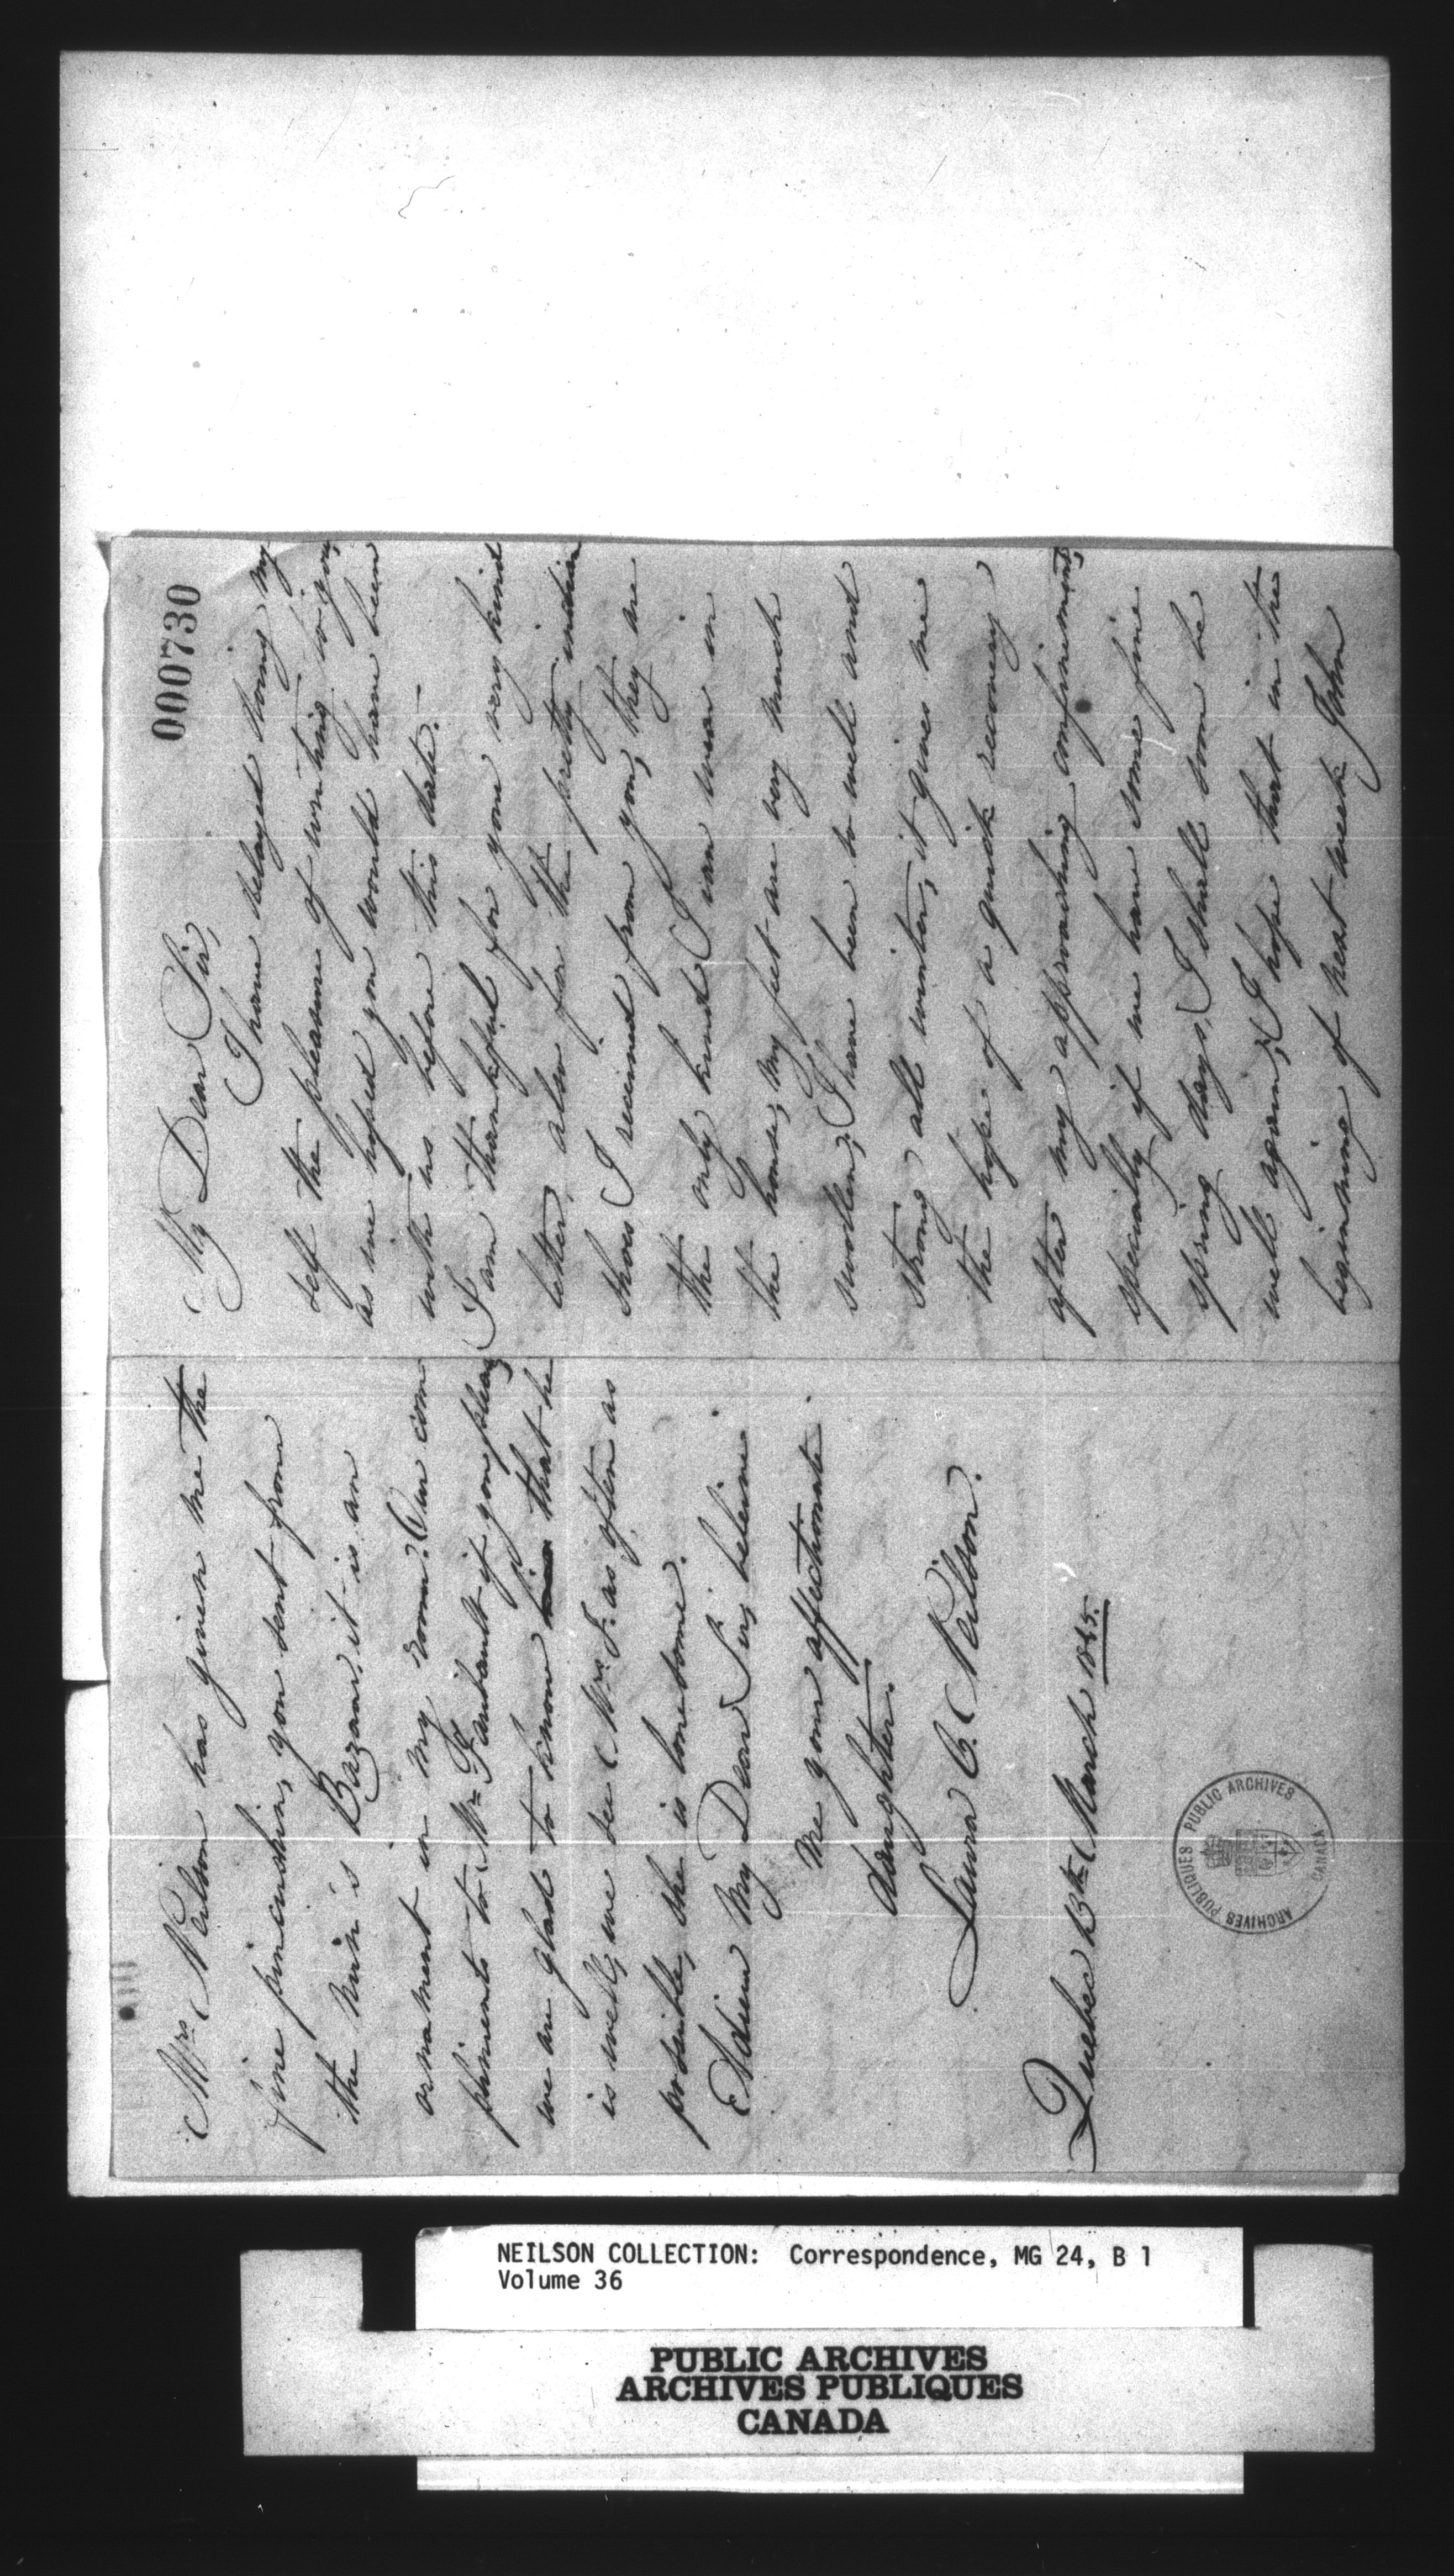 000730
My Dear Sir,
I have delayed doing my
self the pleasure of writing to you,
as we hoped you would have been
with us before this date.—
I am thankful for your very kind
letter, also for the pretty indian
shoes I received from you, they are
the only kind I can wear in
the house, my feet are very much
swollen; I have been so well and
strong all winter, it gives me
the hope of a quick recovery
after my approaching confinement,
specially if we have some fine
spring days, I shall soon be
well again; I hope that in the
beginning of next week John
Mrs Neilson has given me the
fine pincushin, you sent from
the Nun's Bazaar, it is an
ornament in my room. Our com
pliments to Mr Faribault if you please,
we are glad to know that he
is well, we see Mrs F. as often as
possible, she is lonesome.
Adieu My Dear Sir, beleive
me your affectionate
daughter.
Laura C. Neilson.
Quebec 13th March 1845.
ARCHIVES PUBLIQUES PUBLIC ARCHIVES
CANADA
NEILSON COLLECTION: Correspondence, MG 24, B 1
Volume 36
PUBLIC ARCHIVES
ARCHIVES PUBLIQUES
CANADA